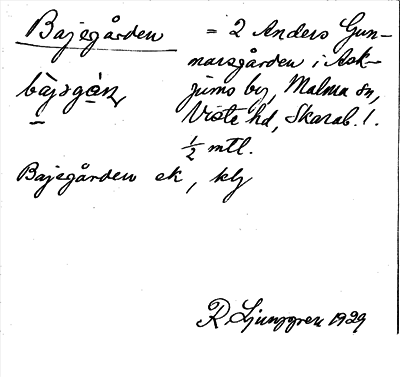 Bajegården = 2 Anders Gun-
narsgården i Ask-
bàjsgà̱n, jums by, Malma sn,
Viste hd, Skarab. l.
1/2 mtl.
Bajegården ek, klj
R Ljunggren 1929